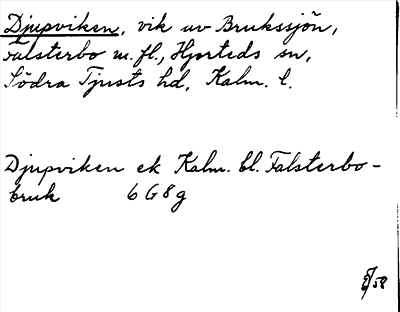 Djupviken, vik av Brukssjön,
Falsterbo m. fl., Hjorteds sn,
Södra Tjusts hd, Kalm. l.
Djupviken ek Kalm. bl. Falsterbo-
bruk 6 G 8 g
58